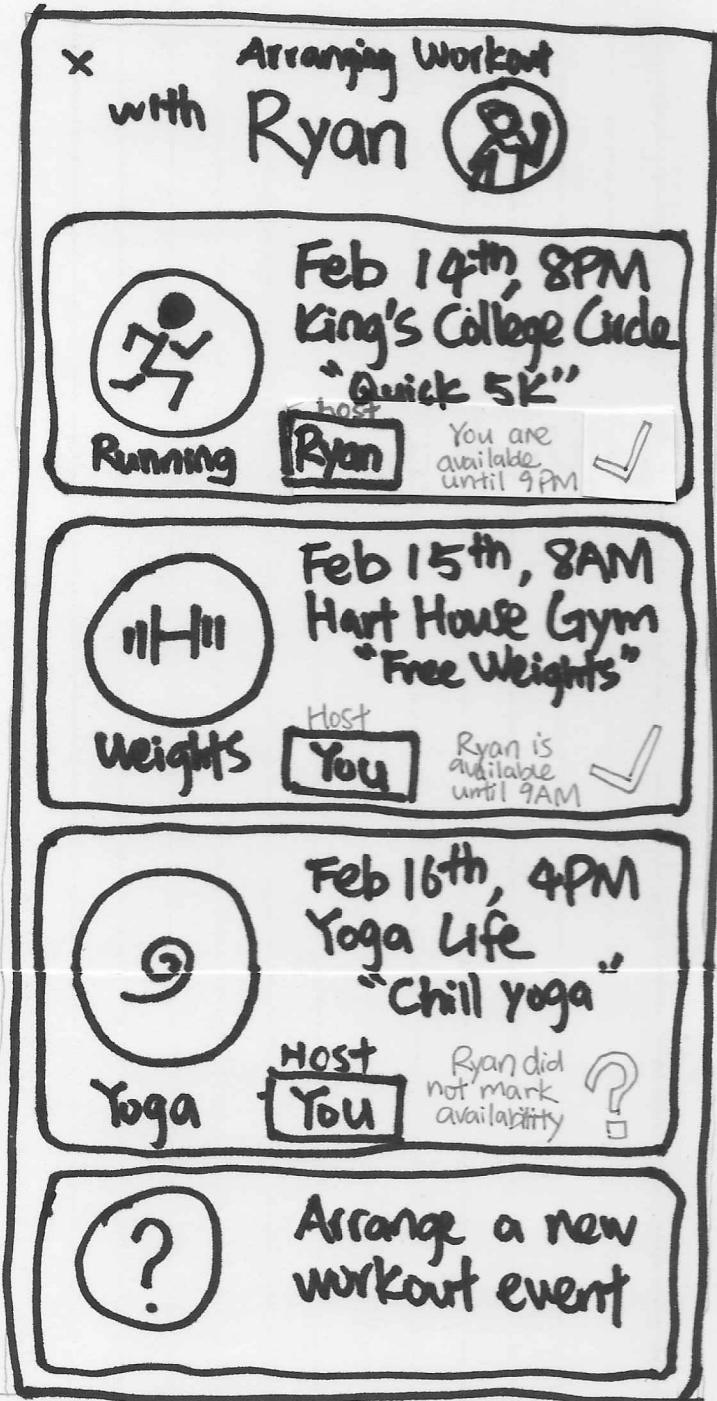 ×
Arranging Workout
with Ryan
Feb 14th, 8PM
King's College Circle
"Quick 5K"
Running
host
Ryan
You are
available
until 9PM
Feb 15th, 8AM
Hart House Gym
"Free Weights"
Weights
Host
You
Ryan is
available
until 9AM
Feb 16th, 4PM
Yoga Life
"Chill Yoga"
Yoga
Host
You
Ryan did
not mark
availability
?
?
Arrange a new
workout event